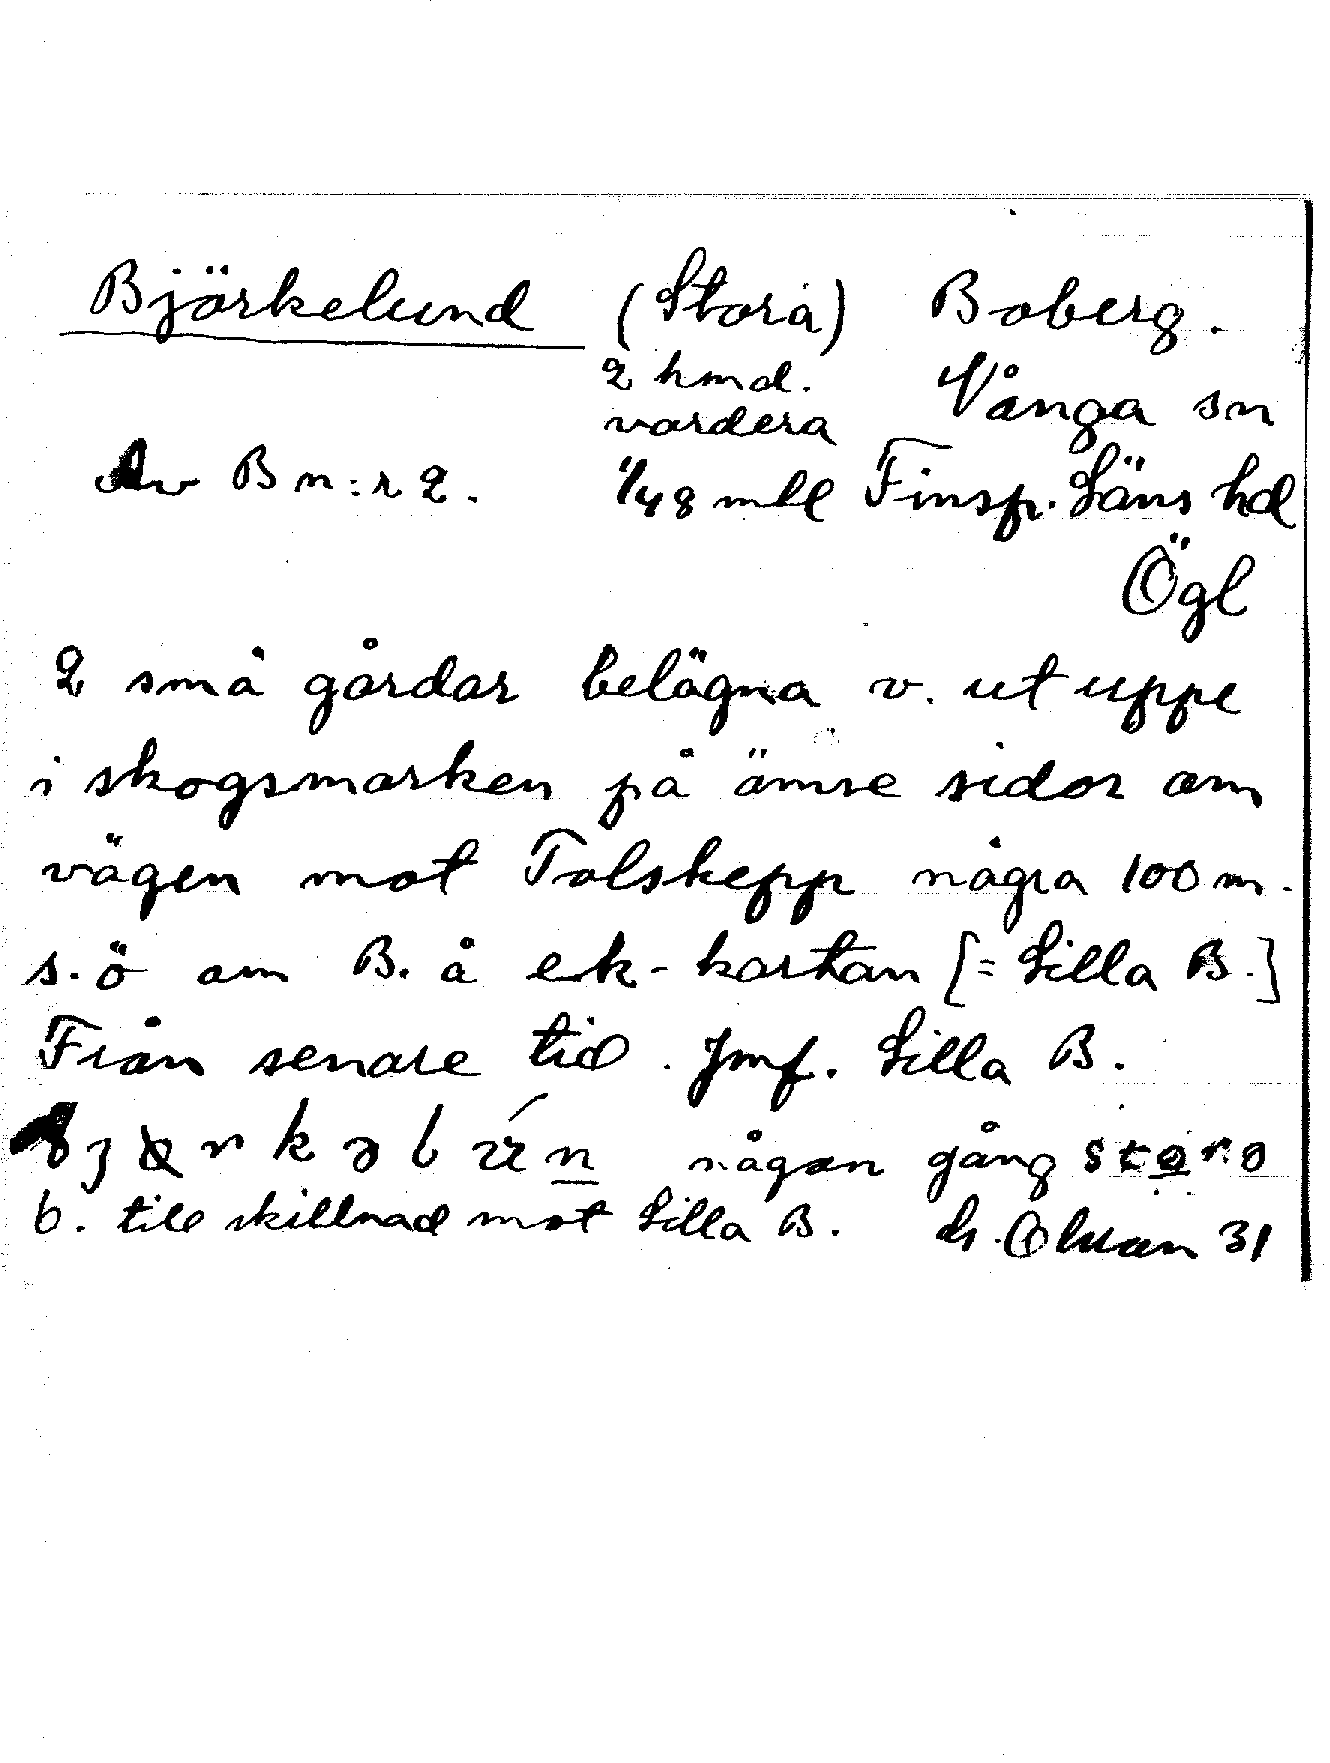 Björkelund (Stora) Boberg.
2 hmd. Vånga sn
vardera
Av B n:r 2. 1/48 mtl Finsp. Läns hd
Ögl
2 små gårdar belägna v. ut uppe
i skogsmarken på ömse sidor om
vägen mot Tolskepp några 100 m.
s.ö om B. å ek-kartan [= Lilla B.]
Från senare tid. Jmf. Lilla B.
någon gång
b. till skillnad mot Lilla B. 31